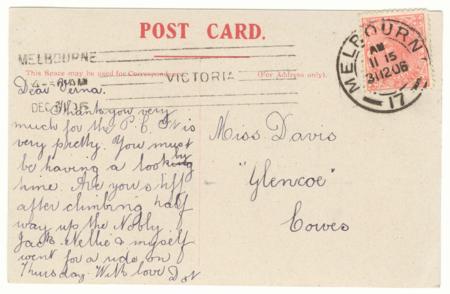 POST CARD.
MELBOURNE
VICTORIA
This Space may be used for Correspondence
(For Address only).
MELBOURNE
AM
11 15
31 12 06
17
Dear Verna.
Thank you very
much for the P.C. It is
very pretty. You must
be having a
time. Are you stiff
after climbing half
way up the Nobby
Jack. Nellie & myself
went for a ride on
Thursday. With love Dot
Miss Davis
"Glencoe"
Cowes